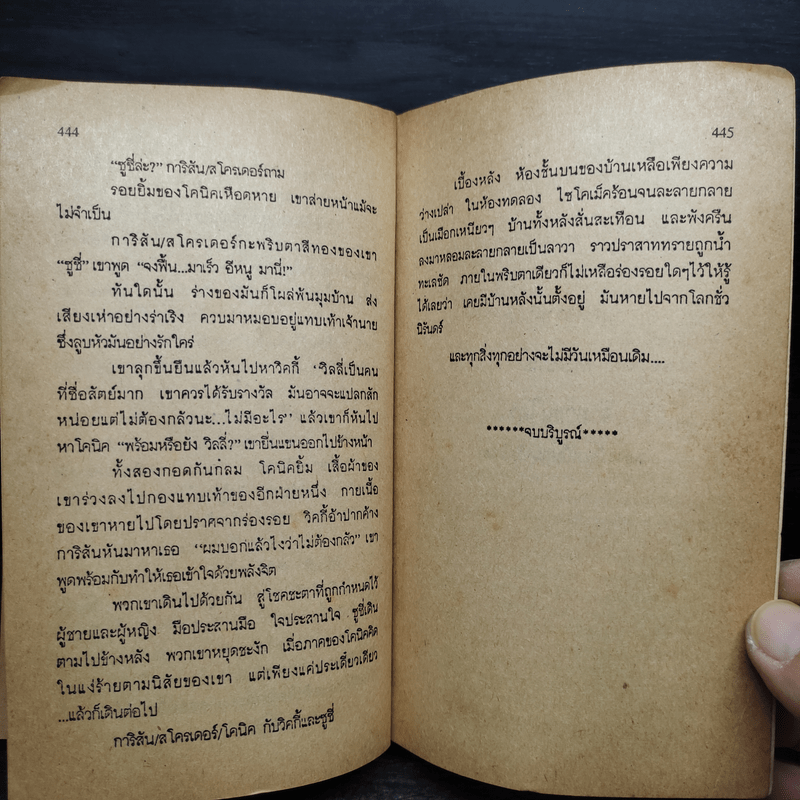 444
“ซูซี่ล่ะ?” การิสัน/สโครเดอร์ถาม
รอยยิ้มของโคนิคเหือดหาย เขาส่ายหน้าแม้จะ
ไม่จำเป็น
การิสัน/สโครเดอร์กะพริบตาสีทองของเขา
“ซูซี่” เขาพูด “จงฟื้น...มาเร็ว อีหนู มานี่!”
ทันใดนั้น ร่างของมันก็โผล่พ้นมุมบ้าน ส่ง
เสียงเห่าอย่างร่าเริง ควบมาหมอบอยู่แทบเท้าเจ้านาย
ซึ่งลูบหัวมันอย่างรักใคร่
เขาลุกขึ้นยืนแล้วหันไปหาวิคกี้ “วิลลี่เป็นคน
ที่ซื่อสัตย์มาก เขาควรได้รับรางวัล มันอาจจะแปลกสัก
หน่อยแต่ไม่ต้องกลัวนะ...ไม่มีอะไร” แล้วเขาก็หันไป
หาโคนิค “พร้อมหรือยัง วิลลี่?” เขายื่นแขนออกไปข้างหน้า
ทั้งสองกอดกันกลม โคนิคยิ้ม เสื้อผ้าของ
เขาร่วงลงไปกองแทบเท้าของอีกฝ่ายหนึ่ง กายเนื้อ
ของเขาหายไปโดยปราศจากร่องรอย วิคกี้อ้าปากค้าง
การิสันหันมาหาเธอ “ผมบอกแล้วไงว่าไม่ต้องกลัว” เขา
พูดพร้อมกับทำให้เธอเข้าใจด้วยพลังจิต
พวกเขาเดินไปด้วยกัน สู่โชคชะตาที่ถูกกำหนดไว้
ผู้ชายและผู้หญิง มือประสานมือ ใจประสานใจ ซูซี่เดิน
ตามไปข้างหลัง พวกเขาหยุดชะงัก เมื่อภาคของโคนิคคิด
ในแง่ร้ายตามนิสัยของเขา แต่เพียงแค่ประเดี๋ยวเดียว
...แล้วก็เดินต่อไป
การิสัน/สโครเดอร์/โคนิค กับวิคกี้และซูซี่
445
เบื้องหลัง ห้องชั้นบนของบ้านเหลือเพียงความ
ว่างเปล่า ในห้องทดลอง ไซโคเม็คร้อนจนละลายกลาย
เป็นเมือกเหนียวๆ บ้านทั้งหลังสั่นสะเทือน และพังครืน
ลงมาหลอมละลายกลายเป็นลาวา ราวปราสาททรายถูกน้ำ
ทะเลซัด ภายในพริบตาเดียวก็ไม่เหลือร่องรอยใดๆไว้ให้รู้
ได้เลยว่า เคยมีบ้านหลังนั้นตั้งอยู่ มันหายไปจากโลกชั่ว
นิรันดร์
และทุกสิ่งทุกอย่างจะไม่มีวันเหมือนเดิม....
******จบบริบูรณ์*****